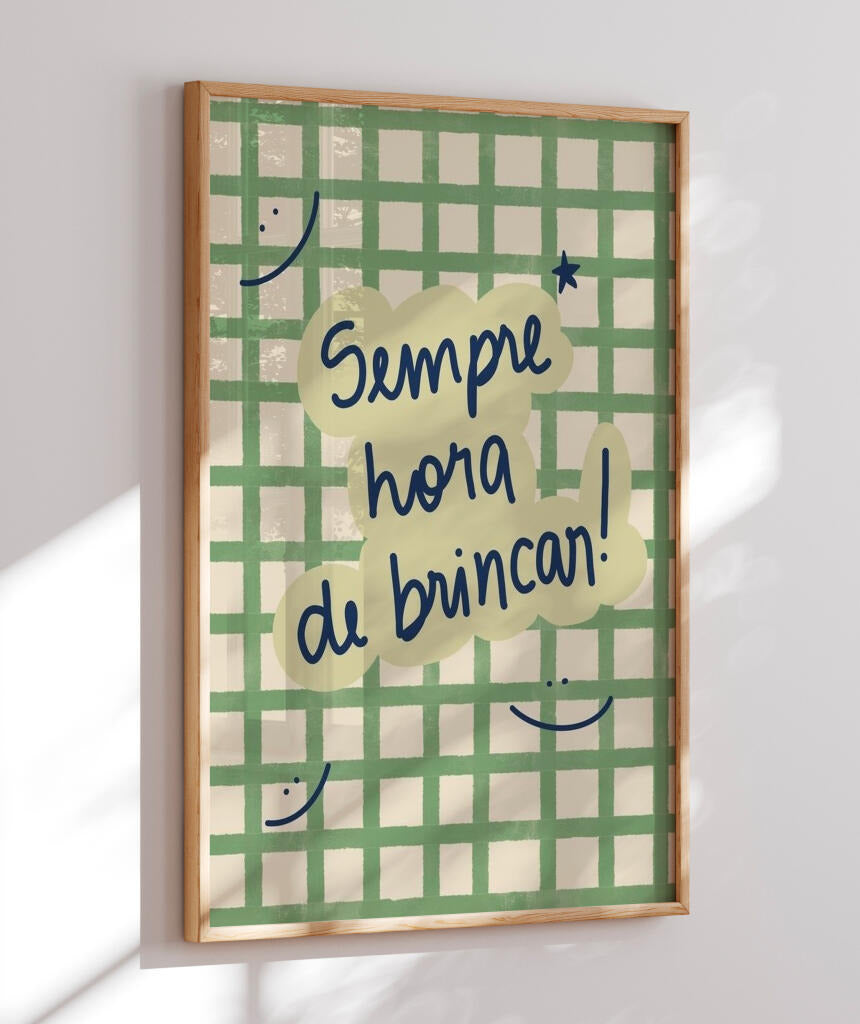 Sempre
hora
de brincar!